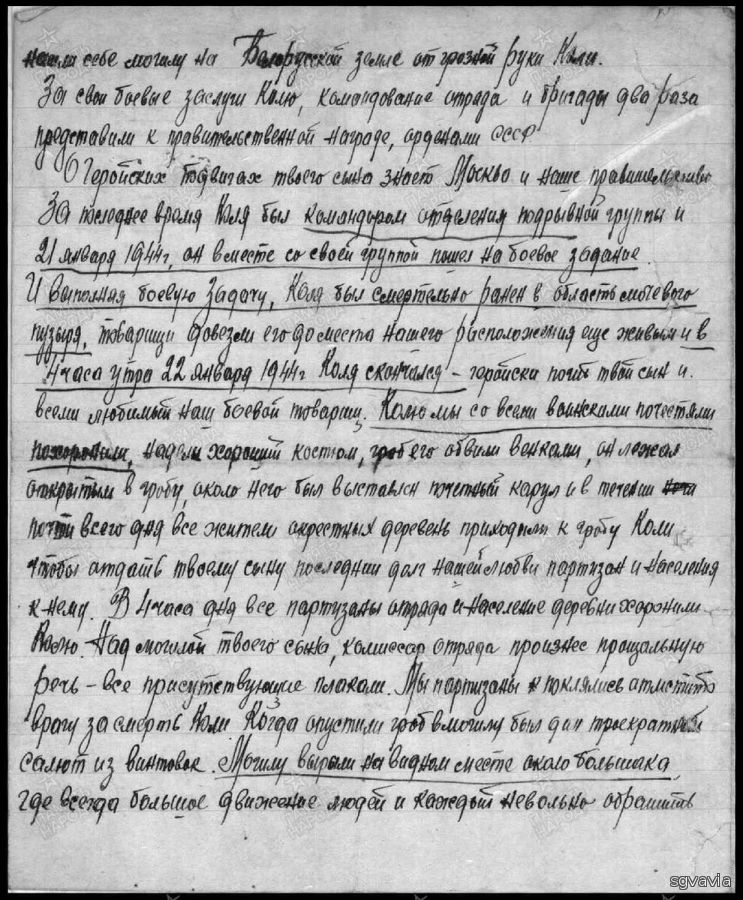 нашли себе могилу на Белорусской земле от грозной руки Коли.
За свои боевые заслуги Колю, командование отряда и бригады два раза
представили к правительственной награде, орденами СССР.
О Геройских подвигах твоего сына знает Москва и наше правительство
За последнее время Коля был командиром отделения подрывной группы и
21 января 1944г, он вместе со своей группой пошел на боевое задание.
И выполняя боевую задачу, Коля был смертельно ранен в область мочевого
пузыря, товарищи довезли его до места нашего расположения еще живым и в
4 часа утра 22 января 1944г Коля скончался – геройски погиб твой сын и
всеми любимый наш боевой товарищ. Колю мы со всеми воинскими почестями
похоронили, надели хороший костюм, гроб его обвили венками, он лежал
открытым в гробу около него был выставлен почетный караул и в течении
почти всего дня все жители окрестных деревень приходили к гробу Коли
чтобы отдать твоему сыну последнии долг нашей любви партизан и населения
к нему. В 4 часа дня все партизаны отряда и население деревни хоронили
Колю. Над могилой твоего сына, комиссар отряда произнес прощальную
речь – все присутствующие плакали. Мы партизаны поклялись отмстить
врагу за смерть Коли. Когда опустили гроб в могилу был дан троекратный
салют из винтовок. Могилу вырыли на видном месте около большака,
где всегда большое движение людей и каждый невольно обратить
sgvavia